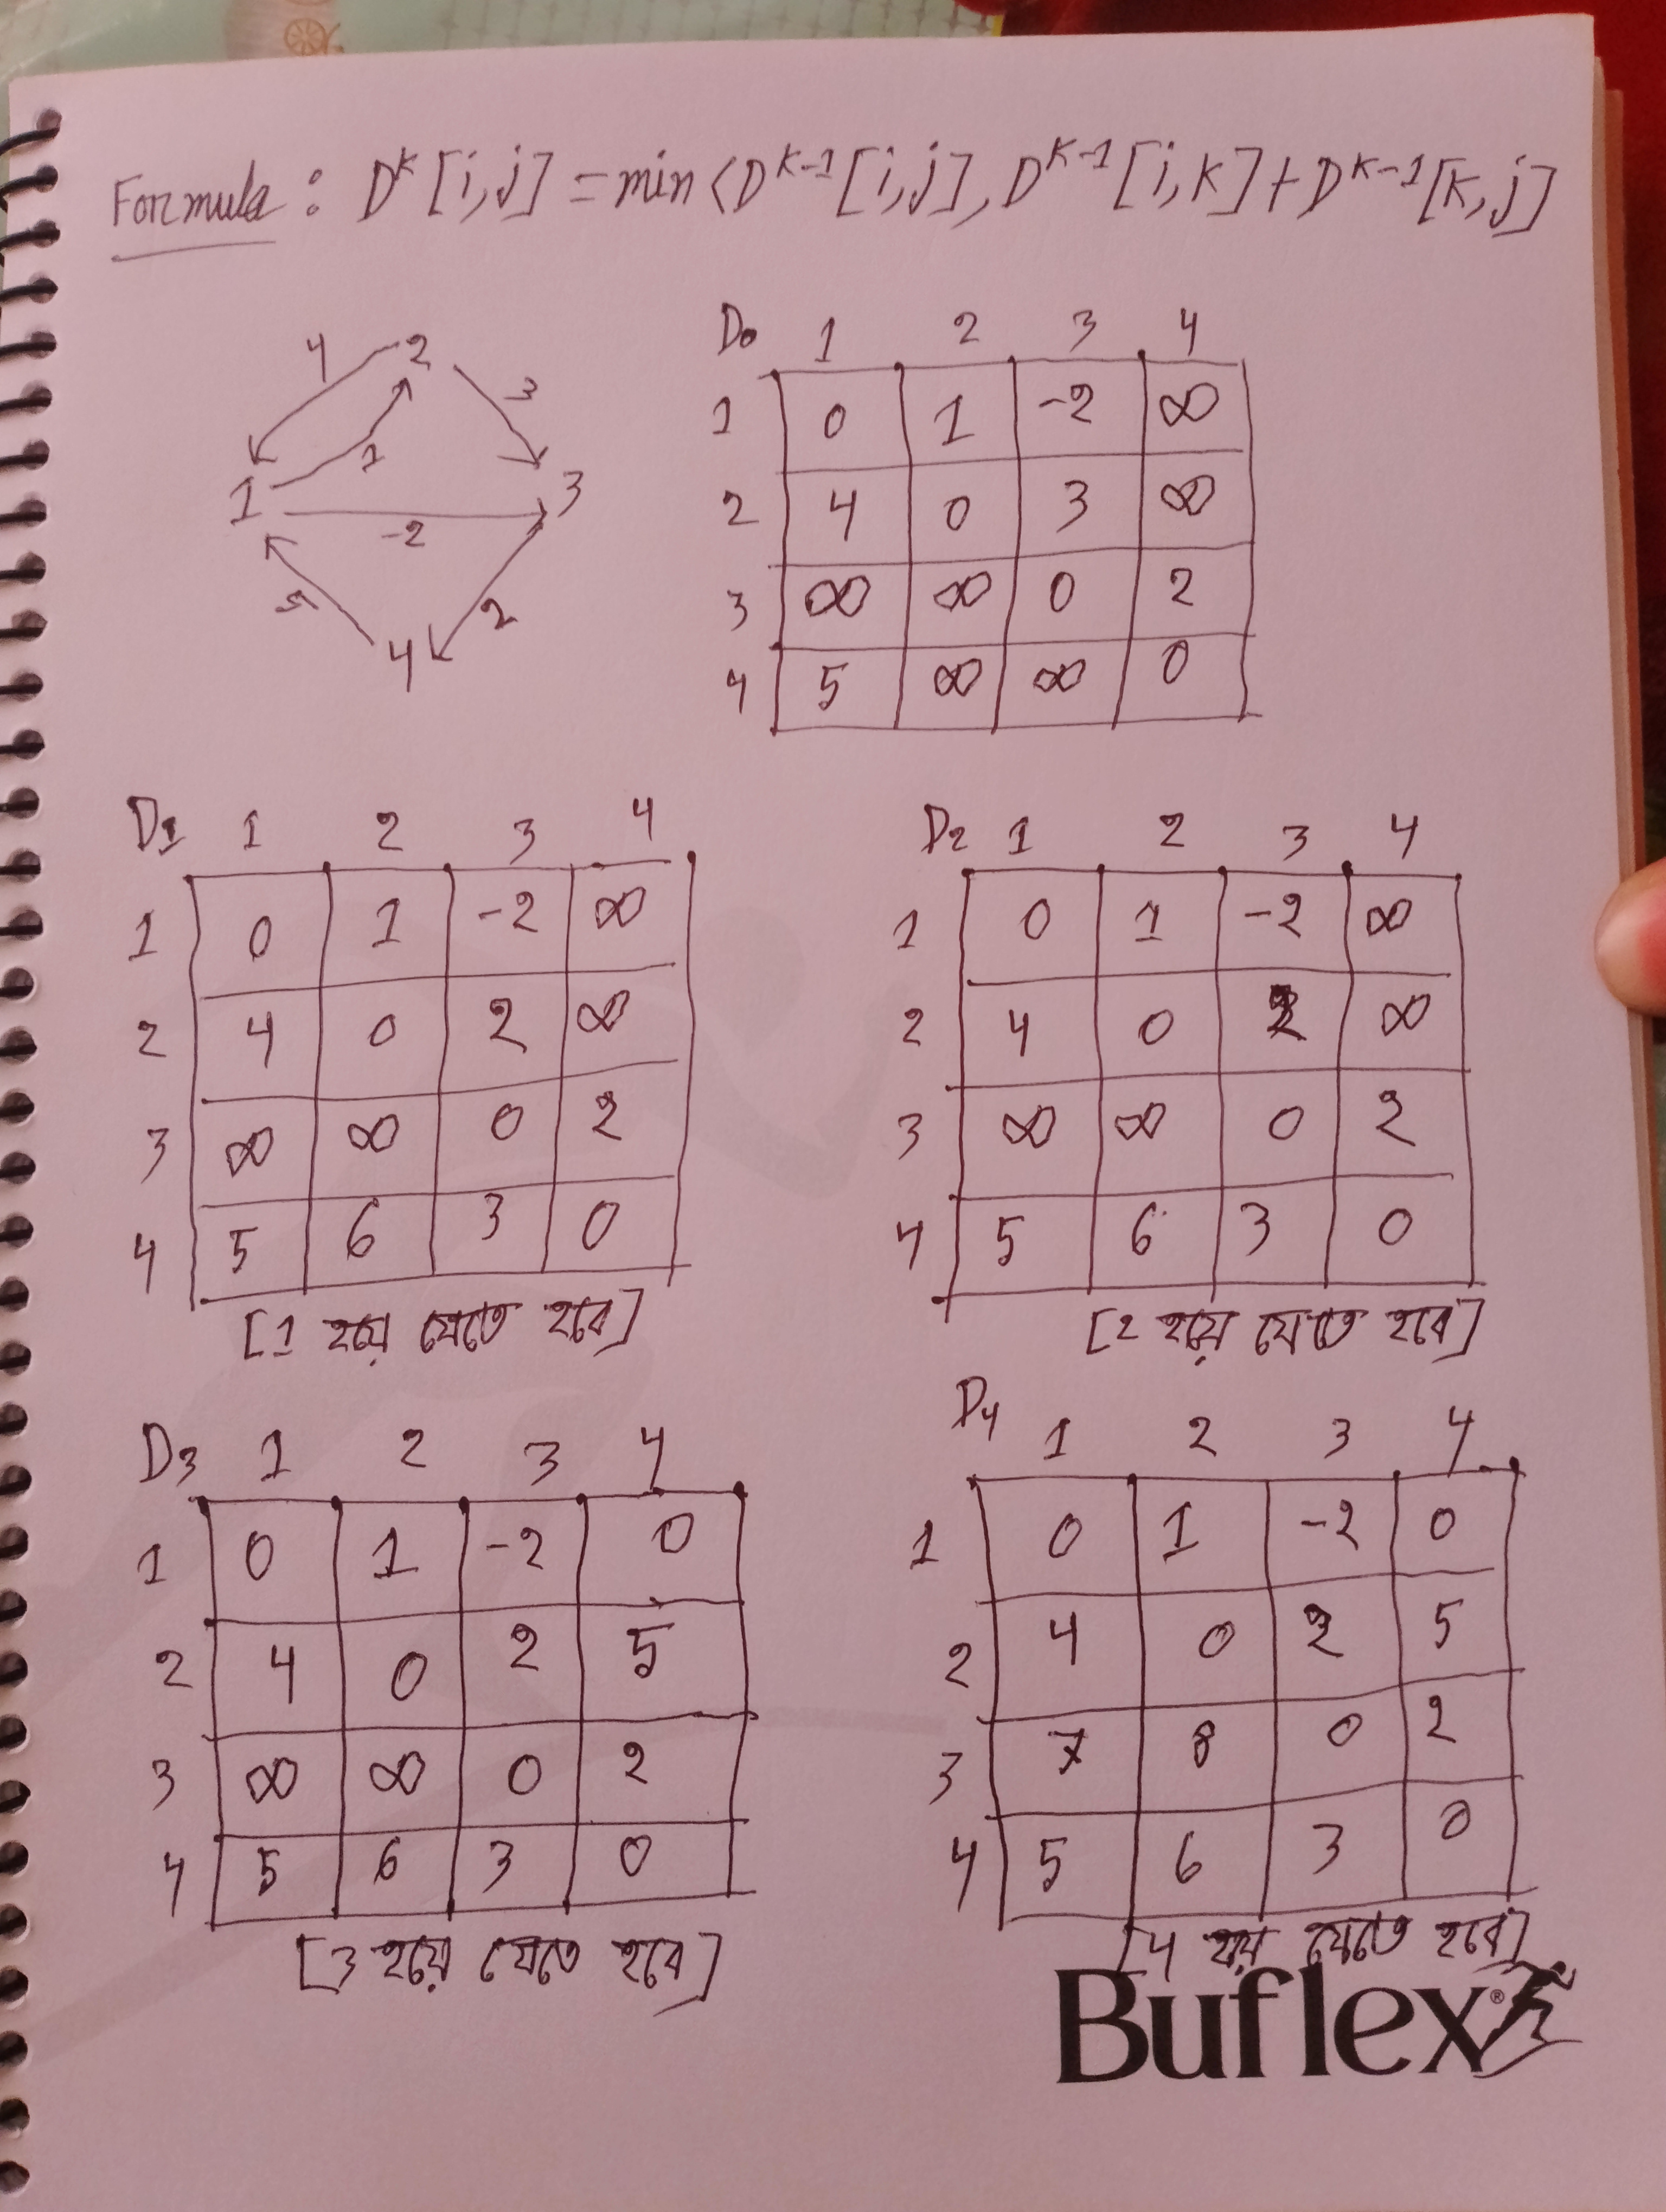 Formula : D^K [i,j] = min < D^K-1 [i,j], D^K-1 [i,K] + D^K-1 [K,j]
4 2 3
1
1 3
-2
5 2
4
D0 1 2 3 4
1 0 1 -2 ∞
2 4 0 3 ∞
3 ∞ ∞ 0 2
4 5 ∞ ∞ 0
D1 1 2 3 4
1 0 1 -2 ∞
2 4 0 2 ∞
3 ∞ ∞ 0 2
4 5 6 3 0
[1 হয়ে যেতে হবে]
D2 1 2 3 4
1 0 1 -2 ∞
2 4 0 2 ∞
3 ∞ ∞ 0 2
4 5 6 3 0
[2 হয়ে যেতে হবে]
D3 1 2 3 4
1 0 1 -2 0
2 4 0 2 5
3 ∞ ∞ 0 2
4 5 6 3 0
[3 হয়ে যেতে হবে]
D4 1 2 3 4
1 0 1 -2 0
2 4 0 2 5
3 7 8 0 2
4 5 6 3 0
[4 হয়ে যেতে হবে]
Buflex®